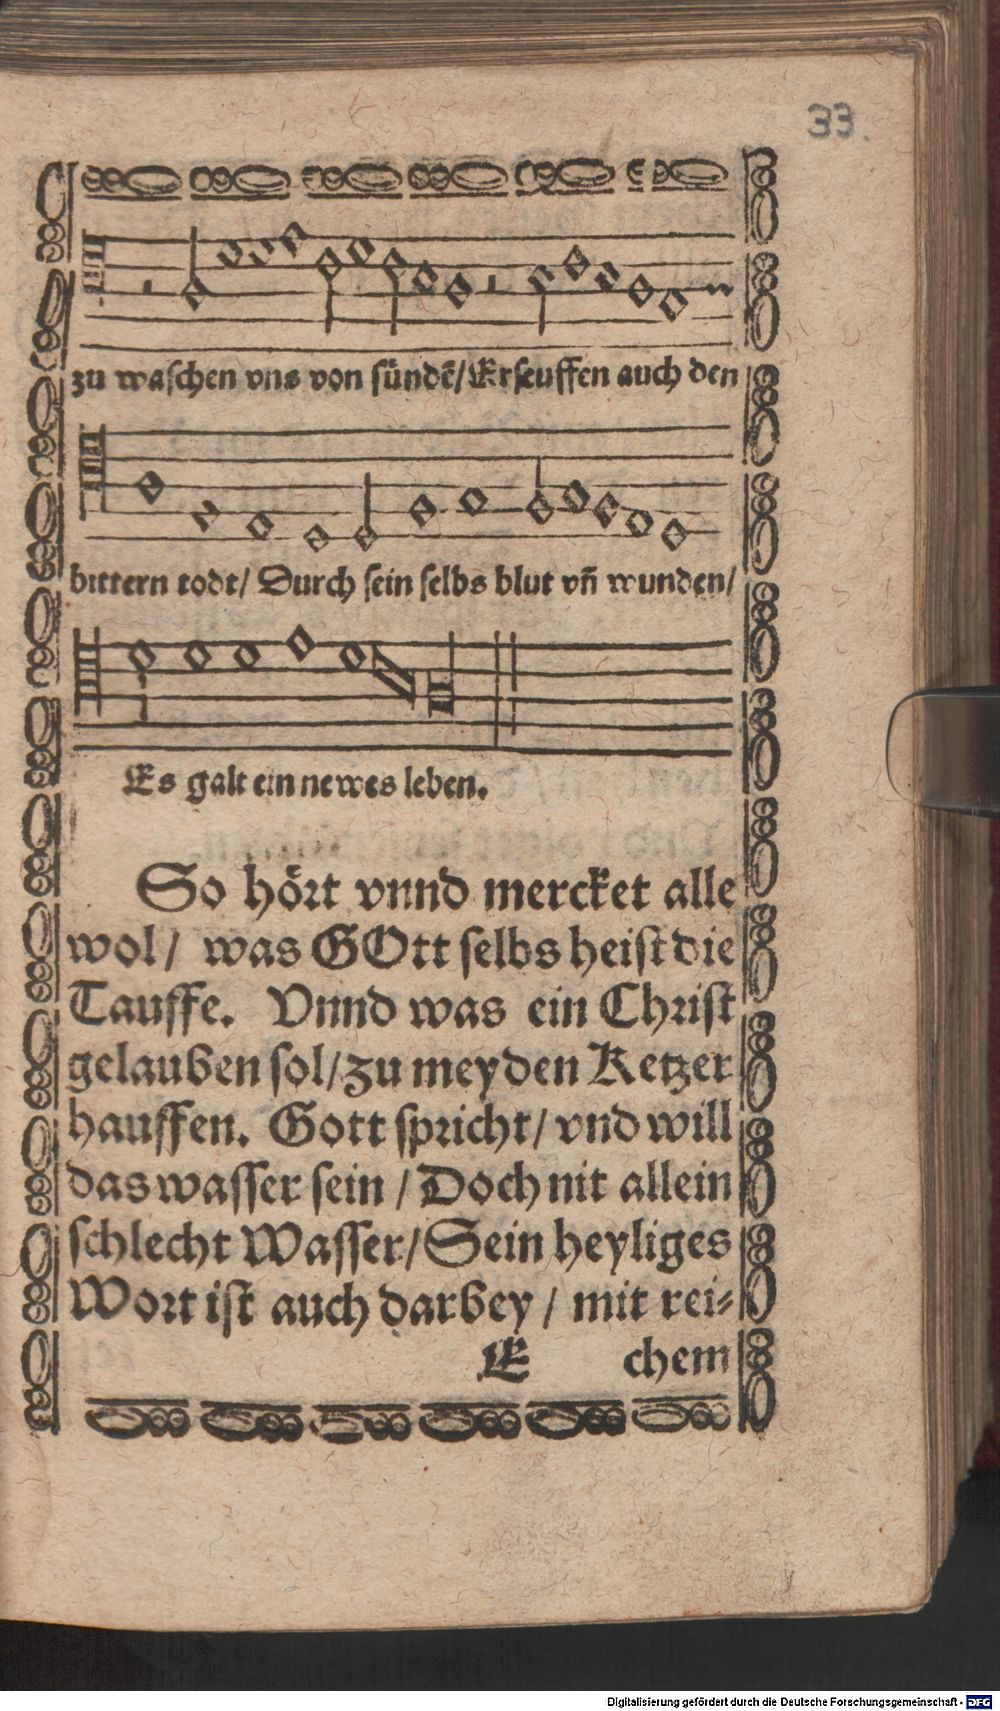 33.
zu waschen vns von sündẽ/ Erseuffen auch den
bittern todt/ Durch sein selbs blut vñ wunden/
Es galt ein newes leben.
So hört vnnd mercket alle
wol/ was GOtt selbs heist die
Tauffe. Vnnd was ein Christ
gelauben sol/ zu meyden Ketzer
hauffen. Gott spricht/ vnd will
das wasser sein/ Doch nit allein
schlecht Wasser/ Sein heyliges
Wort ist auch darbey/ mit rei⸗
E chem
Digitalisierung gefördert durch die Deutsche Forschungsgemeinschaft - DFG